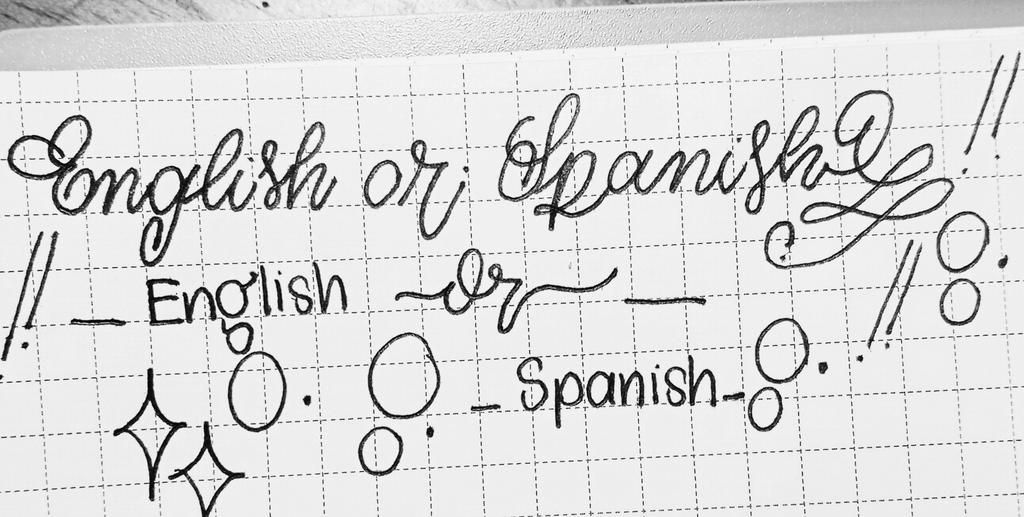 English or Spanish
English Or
Spanish